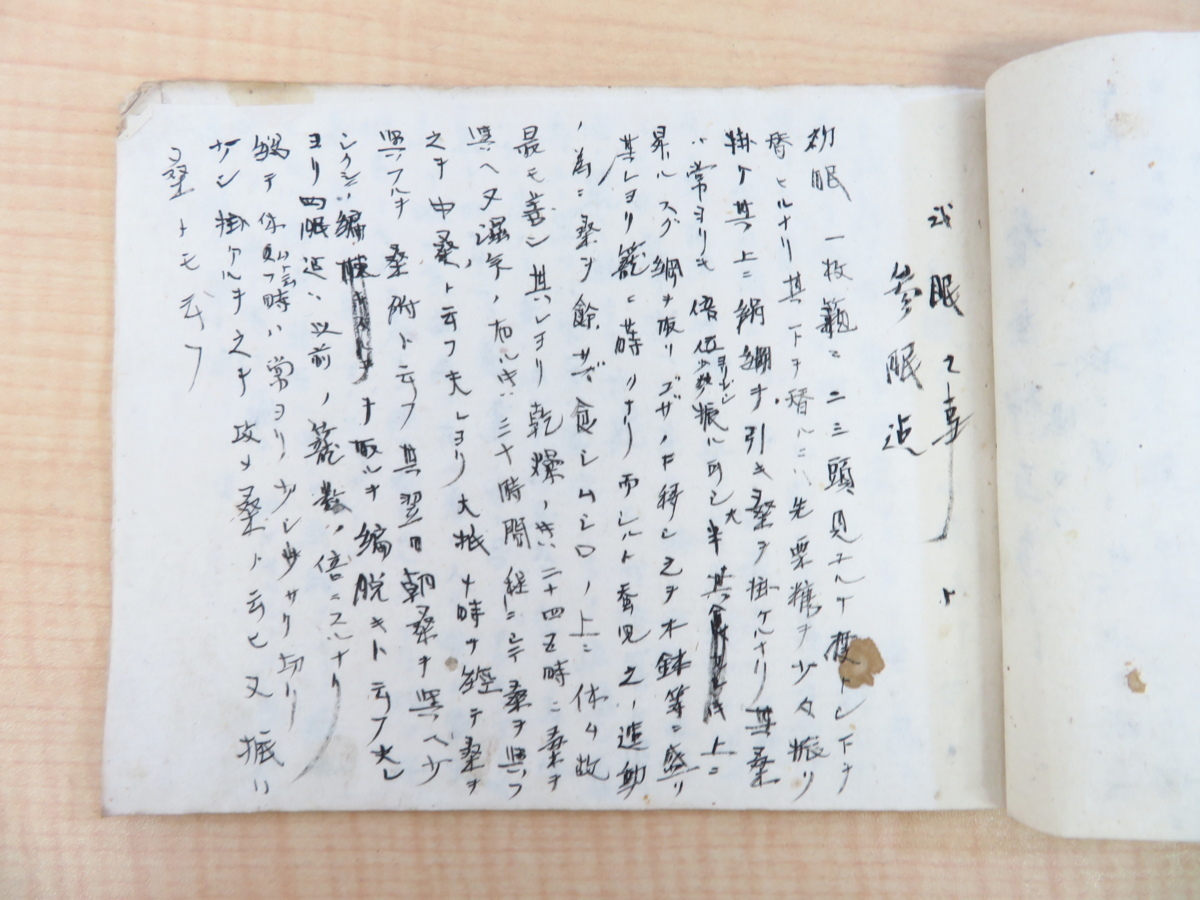 弐眠之事 ト
参眠迠
初眠 一枚籠ニ二三頭見ユルヶ度トシ下ヲ
替ヒルナリ其下ヲ替ルニハ先粟糠ヲ少々振リ
掛ケ其上ニ絹網ヲ引キ桑ヲ掛ケルナリ其桑
ハ常ヨリモ倍伍ヨリ少シ振ル可シ大半其上ニ
昇ルスグ網ヲ取リゴザノ上ニ移シ之ヲ木鉢等ニ盛リ
其レヨリ籠ニ蒔クナリ而シルト蚕児之ハ運動
ノ為ニ桑ヲ餘サズ食シムシロノ上ニ休ム故
最モ善シ其レヨリ乾燥ノ時ハ二十四五時ニ桑ヲ
與ヘ又湿気ノ有ル時ハ三十時間経ニシテ桑ヲ與フ
之ヲ中桑ト云フ夫レヨリ大抵〆時ヲ経テ桑ヲ
與フルヲ桑附ト云フ其翌日朝桑ヲ與ヘ少
シクシテ編ヲ取ルヲ編脱キト云フ夫レ
ヨリ四眠迠ハ以前ノ籠数ハ倍ニスルナリ
総テ休ム時ハ常ヨリ少シ歩サク切リ
サシ掛クルヲ之ヲ攻メ桑ト云ヒ又振リ
桑トモ云フ